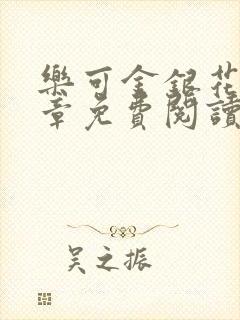 樂可金銀花
章免費閱讀
吴之振